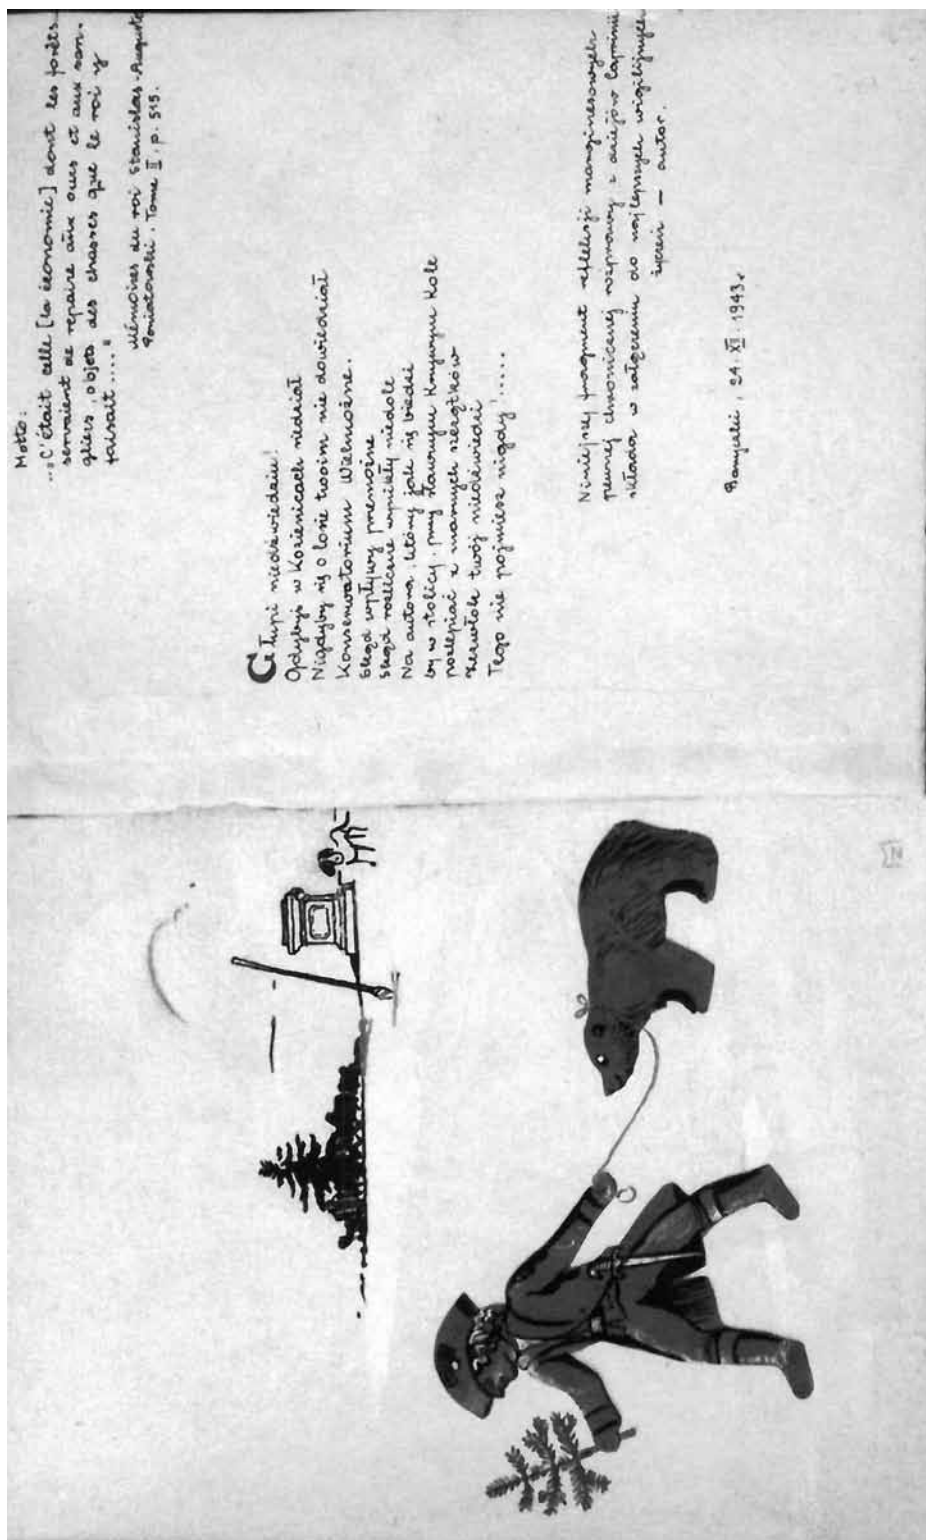 Motto:
„C'était celle [la économie] dont les forêts
servaient de repaire aux ours et aux san-
gliers, objets des chasses que le roi y
faisait...."
Mémoires du roi Stanislas-Auguste
Poniatowski. Tome II. p. 515.
Głupi niedźwiedziu!
Gdybyś w Kozienicach siedział
Nigdyby się o losie twoim nie dowiedziało
Konserwatorium Wielmożne.
Skąd wpływy przemożne
Skąd rozliczne wynikły niedole
Na autora, który jak się biedzi
by w stolicy, przy sławnym Krzywym Kole
pozlepiać z marnych szczątków
zewłok twój niedźwiedzi
Tego nie pojmiesz nigdy!.....
Niniejszy fragment refleksji marginesowych
pewnej chronicznej rozprawy z dziejów Łazienki
składa w załączeniu do najlepszych wigilijnych
życzeń — autor.
, 24. XI. 1943.